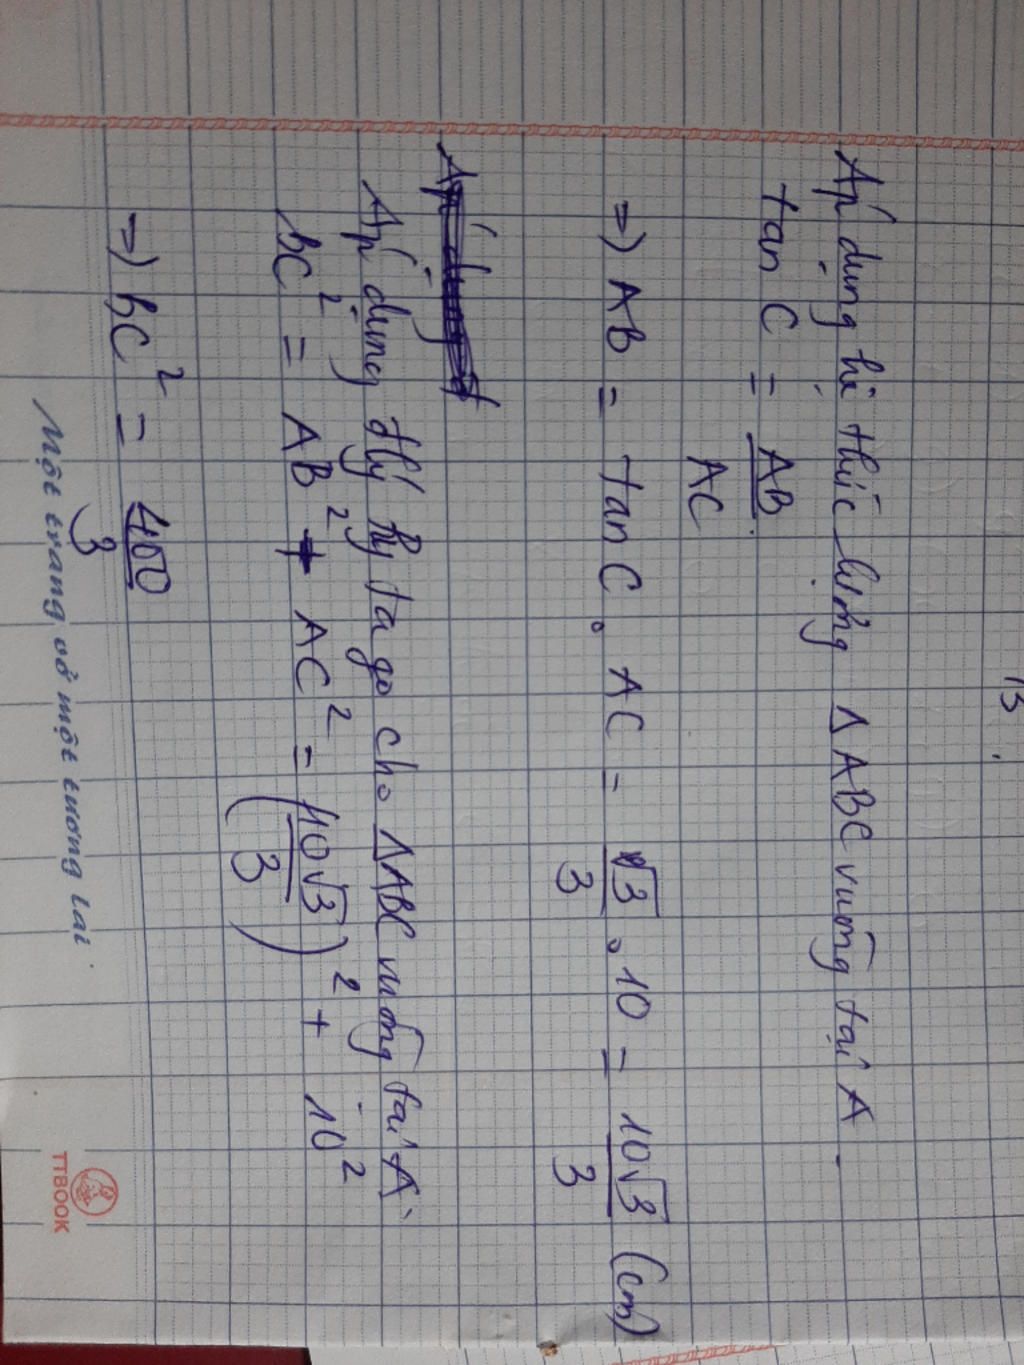 13
Áp dụng hệ thức lượng Δ ABC vuông tại A
tan C = AB/AC
=) AB = tan C . AC = √3/3 . 10 = 10√3/3 (cm)
Áp dụng đ
Áp dụng đlý Py ta go cho ΔABC vuông tại A
BC² = AB² + AC² = (10√3/3)² + 10²
=) BC² = 400/3
Một trang vở một tương lai
TTBOOK